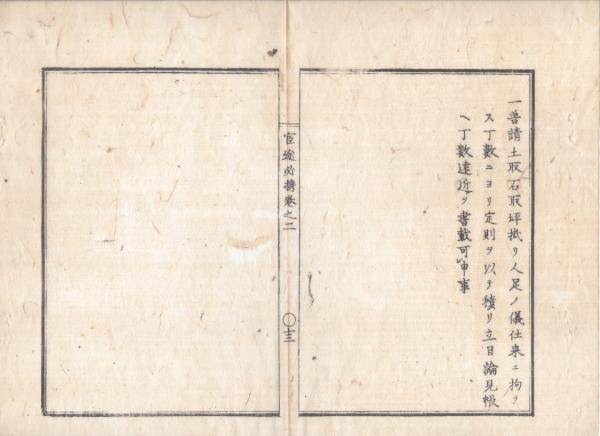 一普請土取石取坪掛リ人足ノ儀仕来ニ拘ラ
ス丁數ニヨリ定則ヲ以テ積リ立目論見帳
ヘ丁數遠近ヲ書載可申事
官途必携卷之二
〇十三